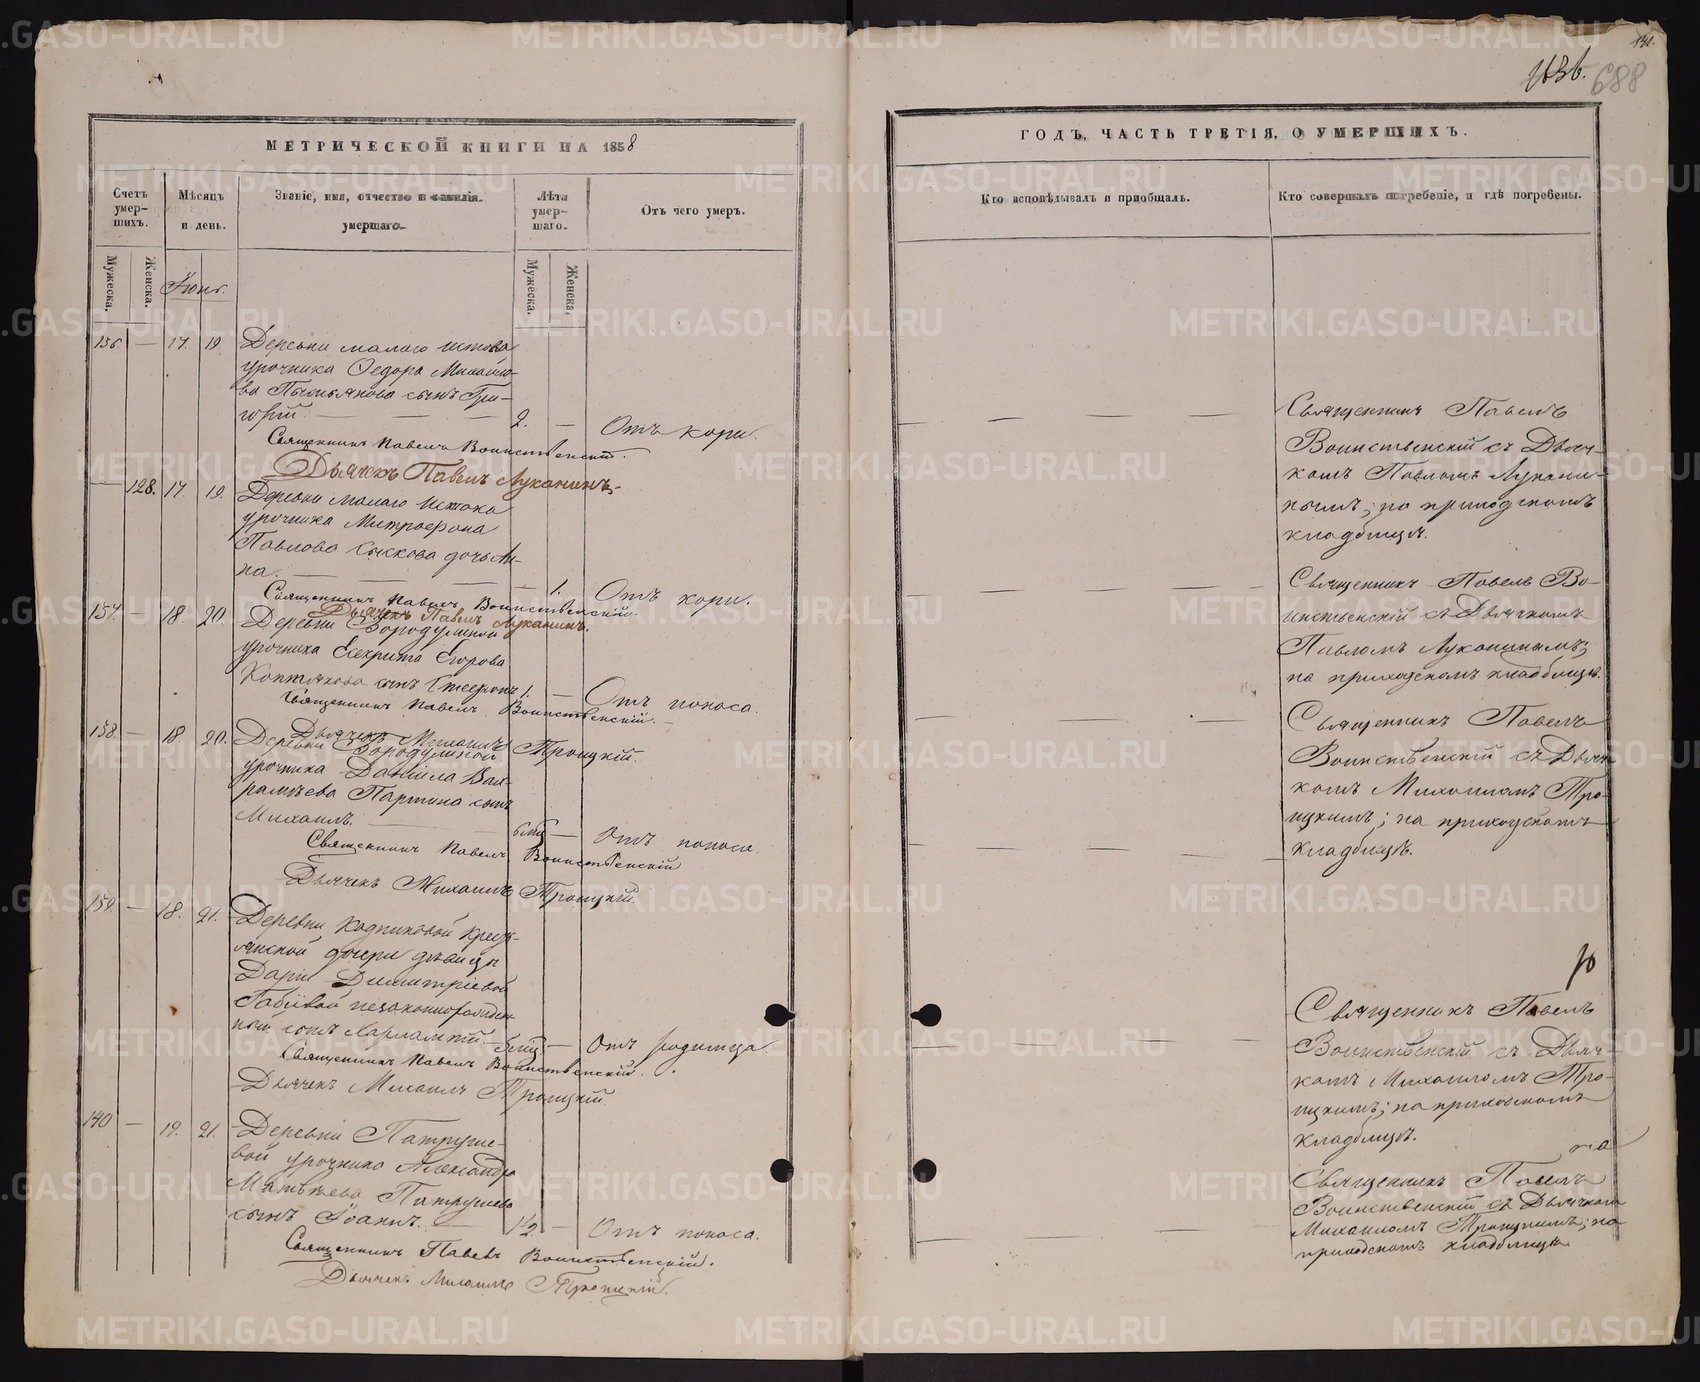 МЕТРИЧЕСКОЙ КНИГИ НА 1858
Счетъ умер-шихъ.
Мѣсяцъ и день.
Званіе, имя, отчество и фамилія умершаго.
Лѣта умер-шаго.
Отъ чего умеръ.
Мужеска.
Женска.
Мужеска.
Женска.
Іюнь.
136. — 17. 19. Деревни малаго истока
урочника Ѳедора Михайло-
ва сынъ Гри-
горій. — — 2. — Отъ кори.
Священникъ Павелъ Воинственскій.
Дьячекъ Павелъ Луканинъ.
— 128. 17. 19. Деревни малаго истока
урочника Митрофона
Павлова дочь Ан-
на. — — — 1. Отъ кори.
Священникъ Павелъ Воинственскій.
Дьячекъ Павелъ Луканинъ.
137. — 18. 20. Деревни Бородулиной
урочника Егорова
Коптякова сынъ Стефанъ 1. — Отъ поноса.
Священникъ Павелъ Воинственскій.
Дьячекъ Михаилъ Троицкій.
138. — 18. 20. Деревни Бородулиной
урочника Даніила Вах-
рамѣева Паргина сынъ
Михаилъ. — 6 — Отъ поноса.
Священникъ Павелъ Воинственскій
Дьячекъ Михаилъ Троицкій.
139. — 18. 21. Деревни Кодниковой крест-
янской дочери дѣвицы
Даріи Димитріевой
незаконнорожден-
ный сынъ Харлампій — — Отъ родимца.
Священникъ Павелъ Воинственскій.
Дьячекъ Михаилъ Троицкій.
140 — 19. 21. Деревни Патруше-
вой урочника Александра
Матвѣева Патрушева
сынъ Іоаннъ. — 1/2 — Отъ поноса.
Священникъ Павелъ Воинственскій.
Дьячекъ Михаилъ Троицкій.
688
ГОДЪ, ЧАСТЬ ТРЕТІЯ, О УМЕРШИХЪ.
Кто исповѣдывалъ и приобщалъ.
Кто совершалъ погребеніе, и гдѣ погребены.
Священникъ Павелъ
Воинственскій съ Дьяч-
комъ Павломъ Лукани-
нымъ; на приходскомъ
кладбищѣ.
Священникъ Павелъ Во-
инственскій съ Дьячкомъ
Павломъ Луканинымъ;
на приходскомъ кладбищѣ.
Священникъ Павелъ
Воинственскій съ Дьяч-
комъ Михаиломъ Тро-
ицкимъ; на приходскомъ
кладбищѣ.
Священникъ Павелъ
Воинственскій съ Дьяч-
комъ Михаиломъ Тро-
ицкимъ; на приходскомъ
кладбищѣ.
Священникъ Павелъ
Воинственскій съ Дьячкомъ
Михаиломъ Троицкимъ; на
приходскомъ кладбищѣ
METRIKI.GASO-URAL.RU